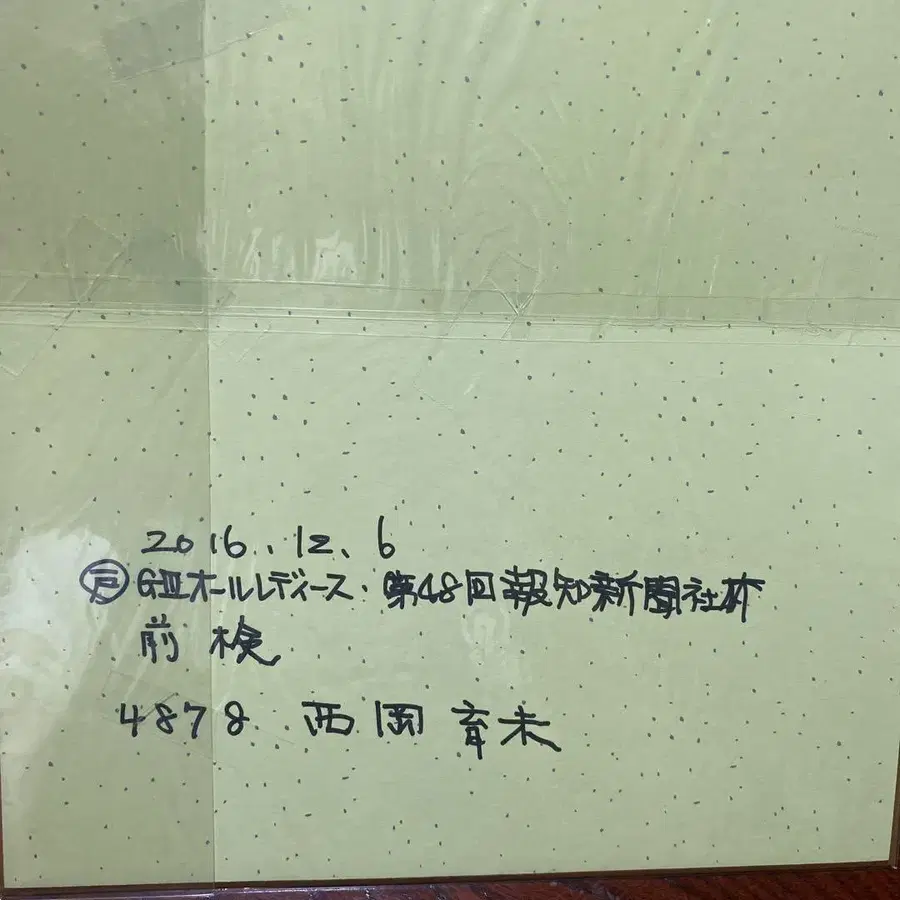 2016.12.6
㊔ GⅢオールレディース・第48回報知新聞社杯
前検
4878 西岡育未